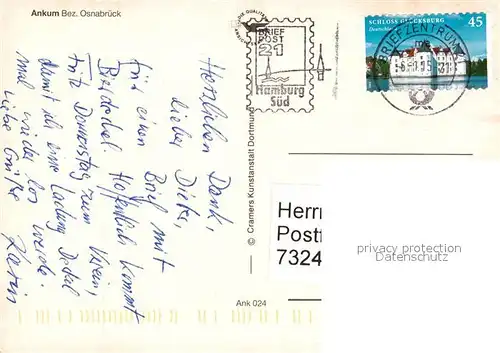 Ankum Bez. Osnabrück
Herzlichen Dank,
lieber Dieter,
für einen Brief mit
Hoffentlich kommt
Fritz Donnerstag zum Verein,
damit ich eine Ladung
mal wieder los werde.
Liebe Grüße
Karin
© Cramers Kunstanstalt Dortmund
Ank 024
BRIEF
POST
21
Hamburg
Süd
SCHLOSS GLÜCKSBURG 45
BRIEFZENTRUM
21
Herr
Post
7324
privacy protection
Datenschutz